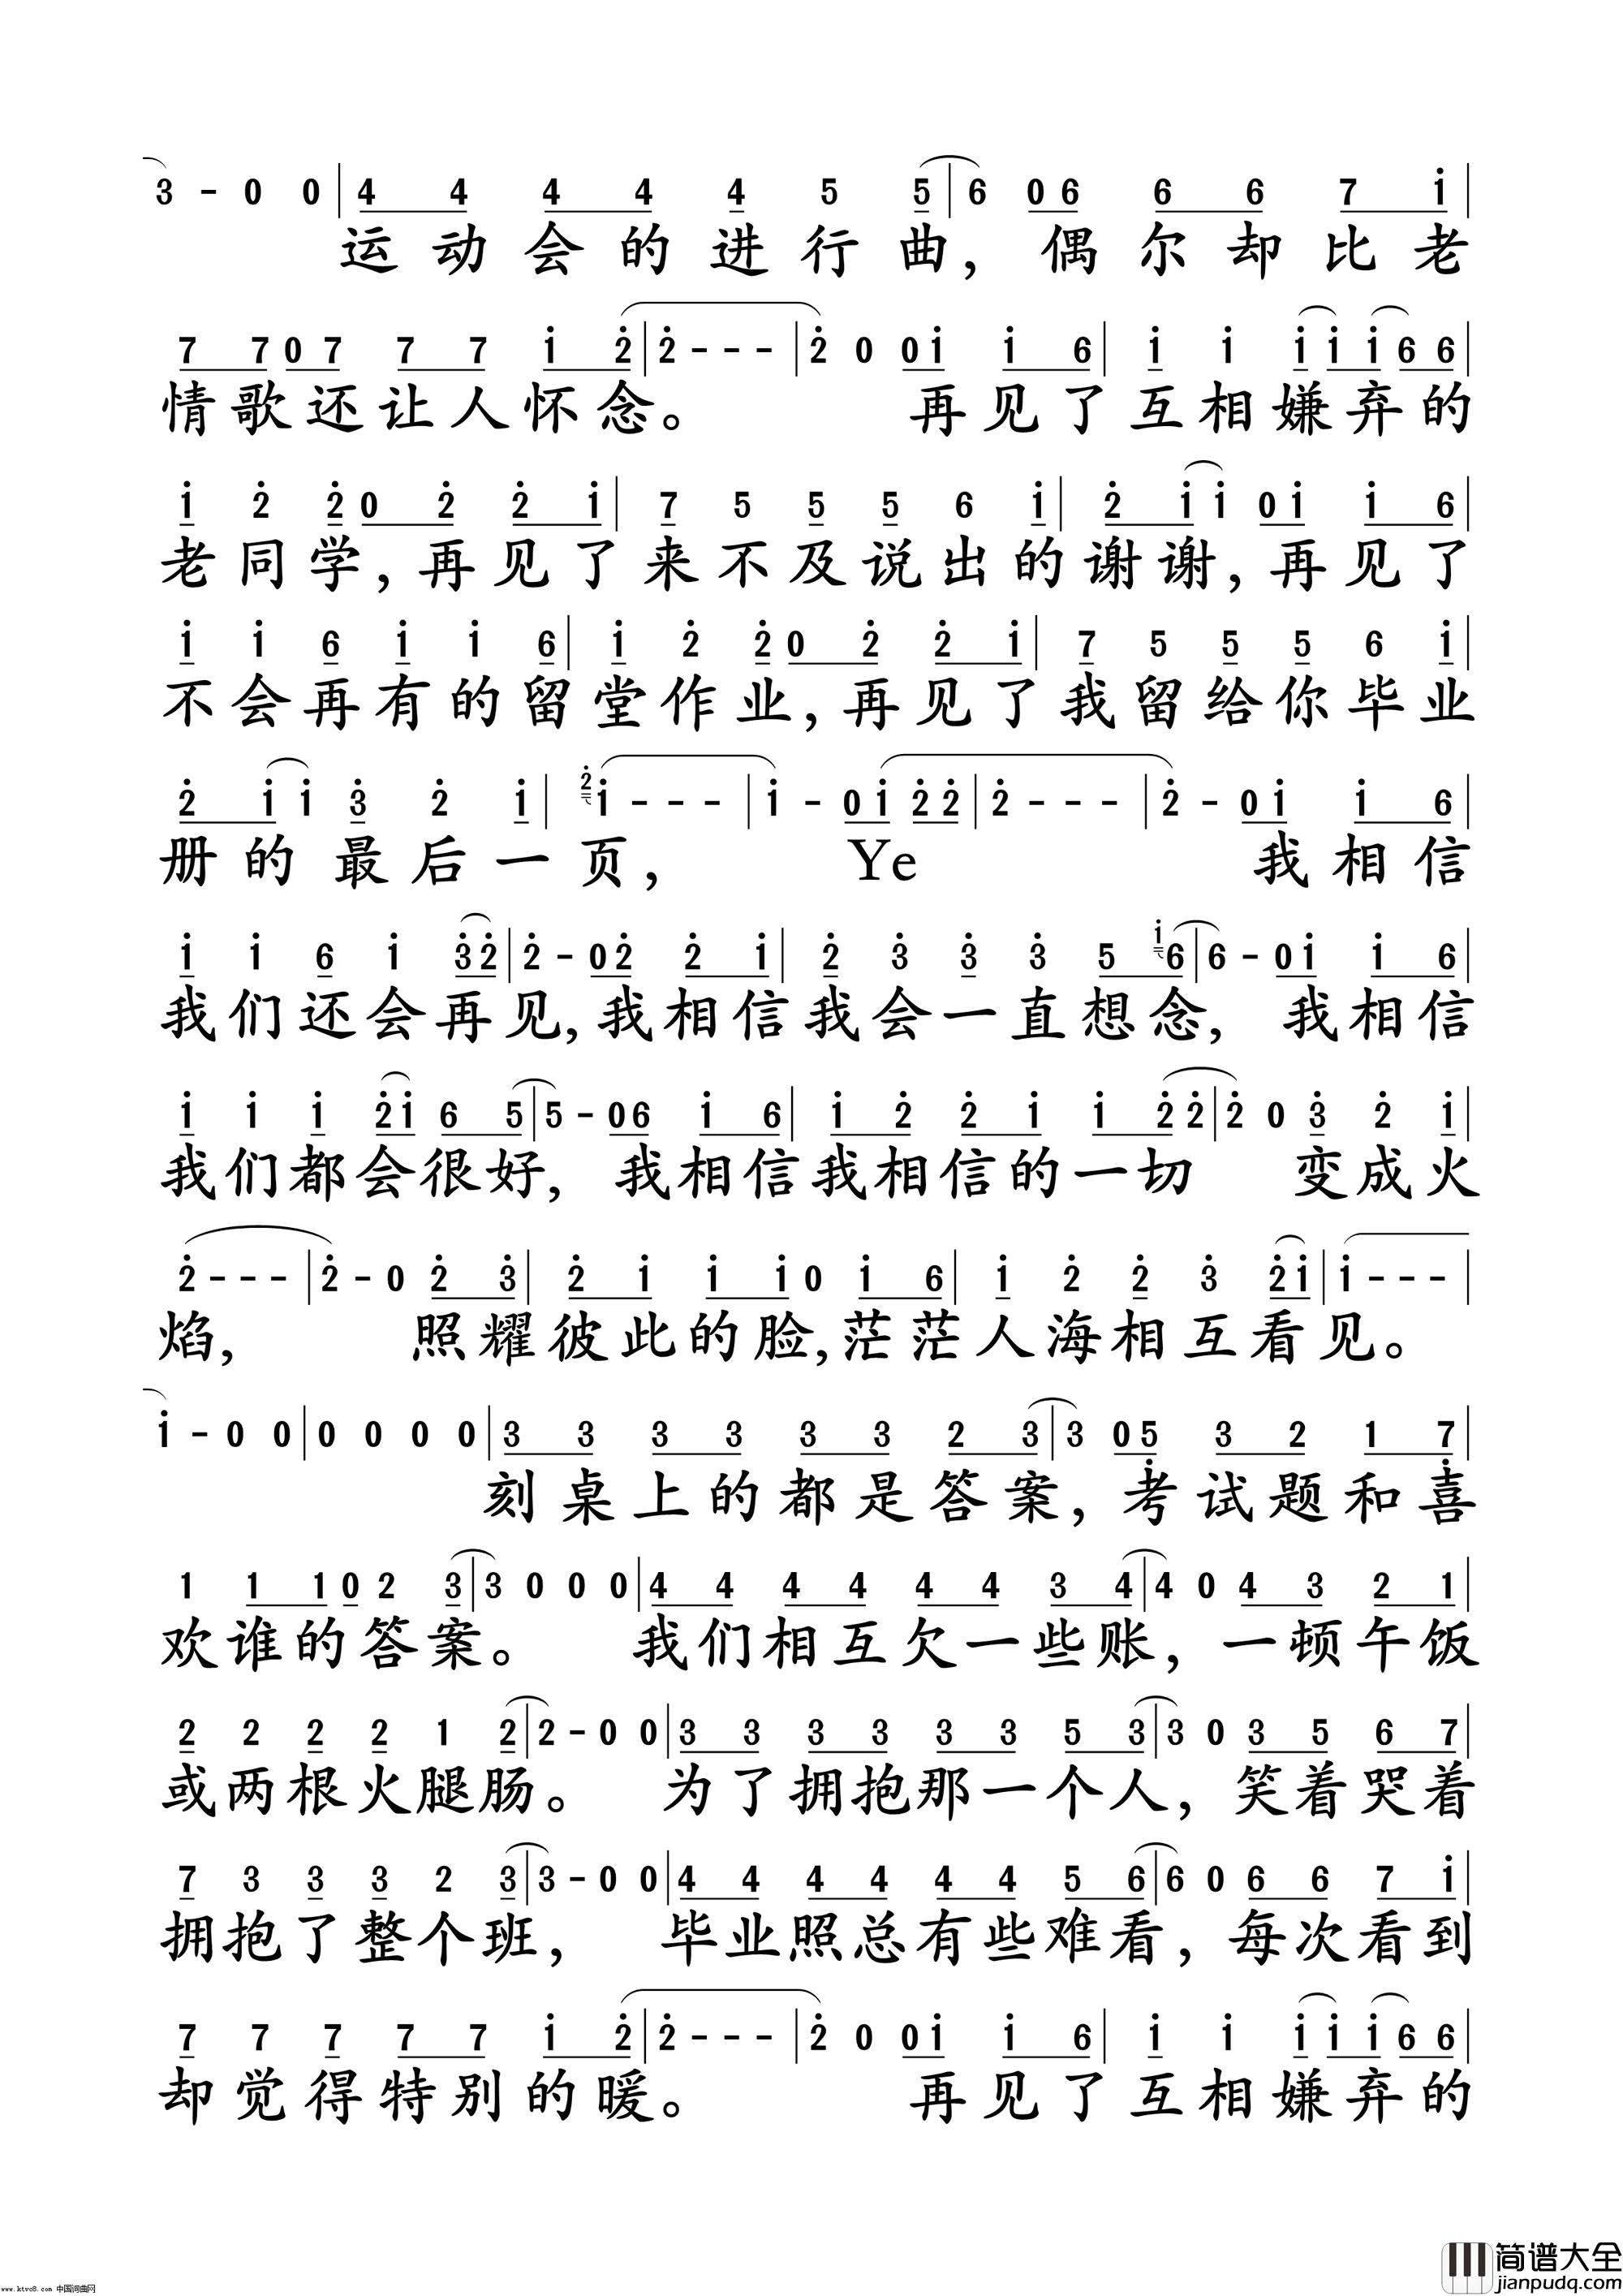 3 - 0 0 | 4 4 4 4 4 5 5 | 6 0 6 6 6 7 i |
运动会的进行曲，偶尔却比老
7 7 0 7 7 7 i 2 | 2 - - - | 2 0 0 i i 6 | i i i i i 6 6 |
情歌还让人怀念。 再见了互相嫌弃的
i 2 2 0 2 2 i | 7 5 5 5 6 i | 2 i i 0 i i 6 |
老同学，再见了来不及说出的谢谢，再见了
i i 6 i i 6 | i 2 2 0 2 2 i | 7 5 5 5 6 i |
不会再有的留堂作业，再见了我留给你毕业
2 i i 3 2 i | 2 i - - - | i - 0 i 2 2 | 2 - - - | 2 - 0 i i 6 |
册的最后一页， Ye 我相信
i i 6 i 3 2 | 2 - 0 2 2 i | 2 3 3 3 5 i 6 | 6 - 0 i i 6 |
我们还会再见，我相信我会一直想念， 我相信
i i i 2 i 6 5 | 5 - 0 6 i 6 | i 2 2 i i 2 2 | 2 0 3 2 i |
我们都会很好， 我相信我相信的一切 变成火
2 - - - | 2 - 0 2 3 | 2 i i i 0 i 6 | i 2 2 3 2 i | i - - - |
焰， 照耀彼此的脸，茫茫人海相互看见。
i - 0 0 | 0 0 0 0 | 3 3 3 3 3 3 2 3 | 3 0 5 3 2 1 7 |
刻桌上的都是答案，考试题和喜
1 1 1 0 2 3 | 3 0 0 0 | 4 4 4 4 4 4 3 4 | 4 0 4 3 2 1 |
欢谁的答案。 我们相互欠一些账，一顿午饭
2 2 2 2 1 2 | 2 - 0 0 | 3 3 3 3 3 3 5 3 | 3 0 3 5 6 7 |
或两根火腿肠。 为了拥抱那一个人，笑着哭着
7 3 3 3 2 3 | 3 - 0 0 | 4 4 4 4 4 4 5 6 | 6 0 6 6 7 i |
拥抱了整个班， 毕业照总有些难看，每次看到
7 7 7 7 7 i 2 | 2 - - - | 2 0 0 i i 6 | i i i i i 6 6 |
却觉得特别的暖。 再见了互相嫌弃的
简谱大全
jianpudq.com
www.ktvc8.com 中国词曲网